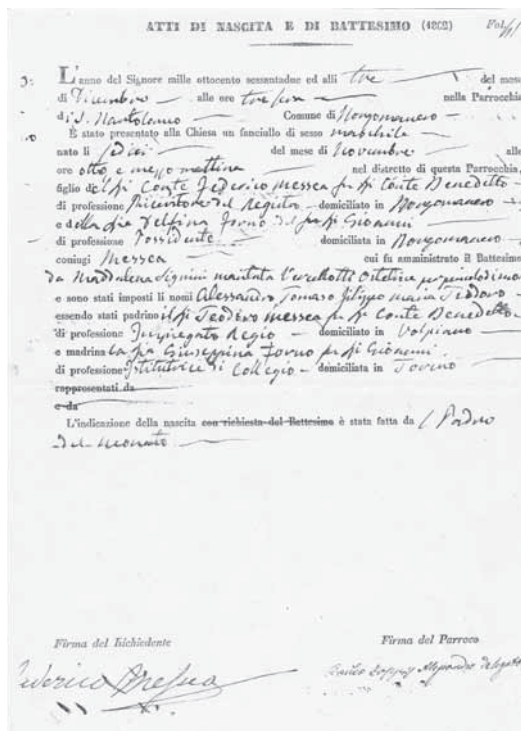 ATTI DI NASCITA E DI BATTESIMO (1862) Fol.
L'anno del Signore mille ottocento sessantadue ed alli tre del mese
di Dicembre alle ore tre sera nella Parrocchia
di S. Comune di Borgomanero
È stato presentato alla Chiesa un fanciullo di sesso maschile
nato li sedici del mese di Novembre alle
ore otto e mezzo mattina nel distretto di questa Parrocchia,
figlio del Conte Federico Messea Conte Benedetto
di professione Ricevitore del Registro domiciliato in Borgomanero
e della Delfina Forno del Giovanni
di professione Possidente domiciliata in Borgomanero
coniugi Messea cui fu amministrato il Battesimo
da Maddalena maritata
e sono stati imposti li nomi Alessandro Tomaso Filippo Maria Teodoro
essendo stati padrino il Teodoro Messea Conte Benedetto
di professione Impiegato Regio domiciliato in Volpiano
e madrina la Giuseppina Forno Giovanni
di professione Istitutrice di Collegio domiciliata in Torino
rappresentati da
e da
L'indicazione della nascita con richiesta del Battesimo è stata fatta da l Padre
del neonato
Firma del Richiedente Firma del Parroco
Federico Messea delegato